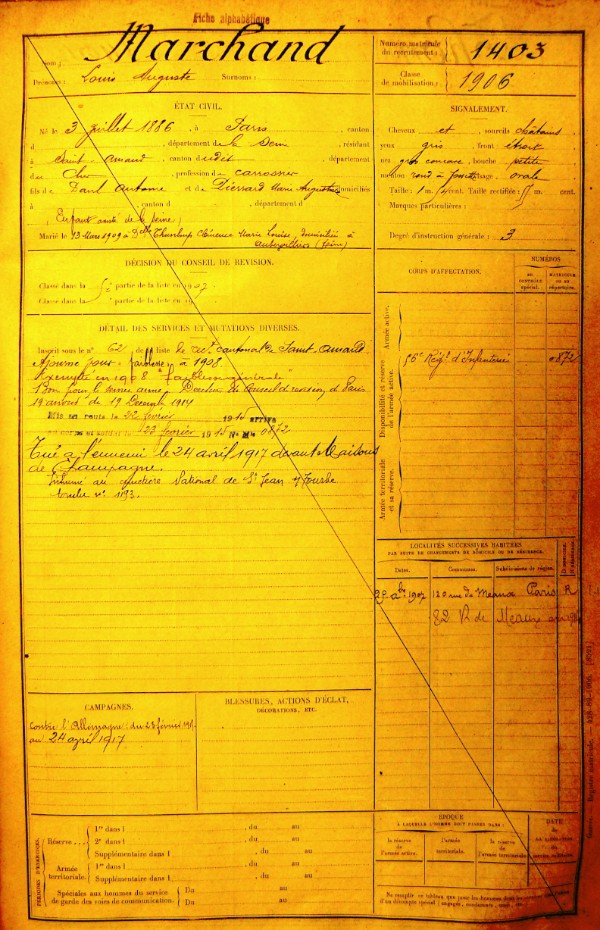 Fiche alphabétique
Nom : Marchand
Prénoms : Louis Auguste Surnoms :
Numéro matricule du recrutement : 1403
Classe de mobilisation : 1906
ÉTAT CIVIL.
Né le 3 juillet 1886, à Paris, canton
d , département de la Seine, résidant
à Saint-Amand, canton dudit, département
du Cher, profession de carrossier
fils de Paul Antoine et de Marie Augustine domiciliés
à , canton d , département d
Marié le 13 Mars 1909 à Delle Marie Louise, domiciliée à
Aubervilliers (Seine)
SIGNALEMENT.
Cheveux et sourcils châtains
yeux gris front étroit
nez gros concave, bouche petite
menton rond à fossette visage ovale
Taille : 1 m. cent. Taille rectifiée : 1 m. cent.
Marques particulières :
Degré d'instruction générale : 3
DÉCISION DU CONSEIL DE REVISION.
Classé dans la 5e partie de la liste en 1907
Classé dans la partie de la liste en 19
DÉTAIL DES SERVICES ET MUTATIONS DIVERSES.
Inscrit sous le n° 62 de la liste de canton de Saint-Amand
Ajourné pour faiblesse à 1908
Exempté en 1908
Bon pour le service armé Décision du Conseil de révision de Paris
19e arrondt du 19 Décembre 1914
Mis en route le 22 février 1915 arrivé
au corps et le 23 février 1915 N° Mle 0872
Tué à l'ennemi le 24 avril 1917 devant Maisons
de Champagne.
Inhumé au cimetière National de St Jean s/Tourbe
Tombe n° 1193.
CORPS D'AFFECTATION.
NUMÉROS
AU CONTROLE SPÉCIAL.
MATRICULE OU AU RÉPERTOIRE.
Armée active.
Disponibilité et réserve de l'armée active.
Armée territoriale et sa réserve.
86e Régt d'Infanterie 0872
LOCALITÉS SUCCESSIVES HABITÉES
PAR SUITE DE CHANGEMENTS DE DOMICILE OU DE RÉSIDENCE.
Dates. Communes. Subdivisions de région.
1907 120 rue de Meaux Paris R
82 R. de Meaux
CAMPAGNES.
Contre l'Allemagne : du 23 février 1915
au 24 avril 1917
BLESSURES, ACTIONS D'ÉCLAT,
DÉCORATIONS, ETC.
PÉRIODES D'EXERCICES.
Réserve
1re dans l , du au
2e dans l , du au
Supplémentaire dans l , du au
Armée territoriale.
1re dans l , du au
Supplémentaire dans l , du au
Spéciales aux hommes du service de garde des voies de communication.
Du au
Du au
ÉPOQUE
À LAQUELLE L'HOMME DOIT PASSER DANS :
la réserve de l'armée active.
l'armée territoriale.
la réserve de l'armée territoriale.
DATE DE LA LIBÉRATION DU service militaire.